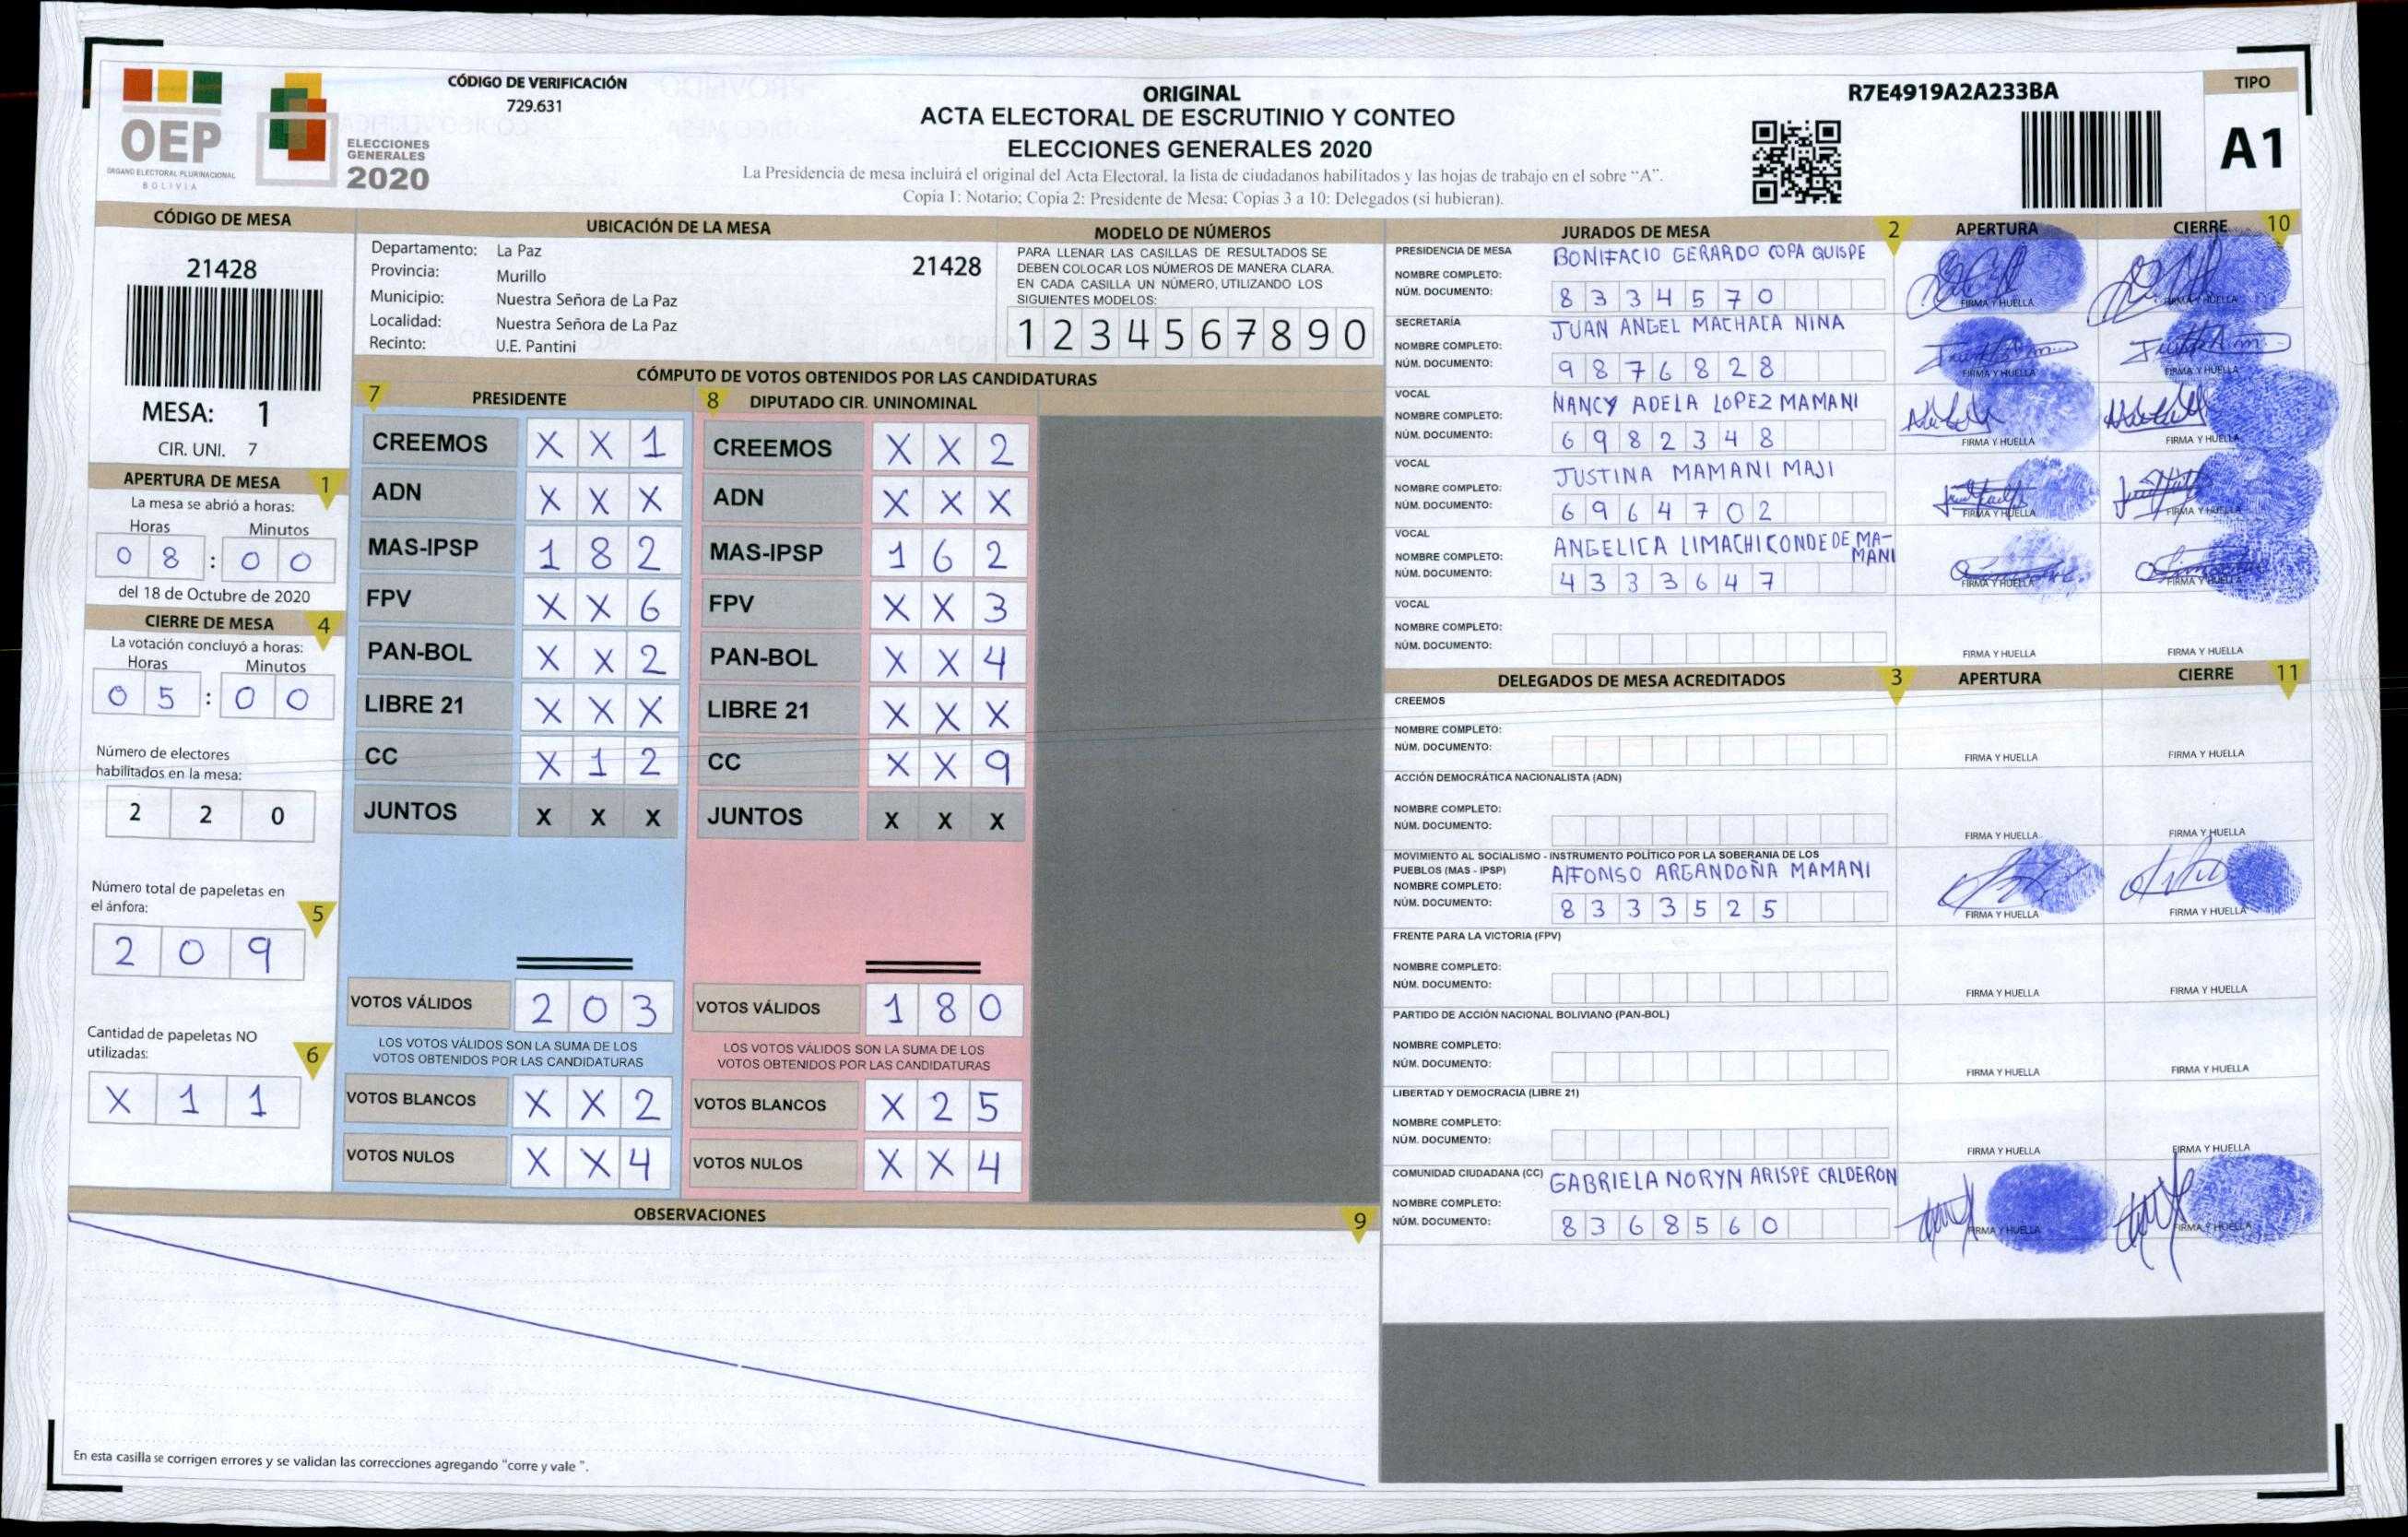 OEP
ÓRGANO ELECTORAL PLURINACIONAL
BOLIVIA
ELECCIONES
GENERALES
2020
CÓDIGO DE VERIFICACIÓN
729.631
ORIGINAL
ACTA ELECTORAL DE ESCRUTINIO Y CONTEO
ELECCIONES GENERALES 2020
La Presidencia de mesa incluirá el original del Acta Electoral, la lista de ciudadanos habilitados y las hojas de trabajo en el sobre “A”.
Copia 1: Notario; Copia 2: Presidente de Mesa; Copias 3 a 10: Delegados (si hubieran).
R7E4919A2A233BA
TIPO
A1
CÓDIGO DE MESA
21428
MESA: 1
CIR. UNI. 7
APERTURA DE MESA 1
La mesa se abrió a horas:
Horas Minutos
0 8 : 0 0
del 18 de Octubre de 2020
CIERRE DE MESA 4
La votación concluyó a horas:
Horas Minutos
0 5 : 0 0
Número de electores
habilitados en la mesa:
2 2 0
Número total de papeletas en
el ánfora: 5
2 0 9
Cantidad de papeletas NO
utilizadas: 6
X 1 1
UBICACIÓN DE LA MESA
Departamento: La Paz
Provincia: Murillo
Municipio: Nuestra Señora de La Paz
Localidad: Nuestra Señora de La Paz
Recinto: U.E. Pantini
21428
MODELO DE NÚMEROS
PARA LLENAR LAS CASILLAS DE RESULTADOS SE
DEBEN COLOCAR LOS NÚMEROS DE MANERA CLARA.
EN CADA CASILLA UN NÚMERO, UTILIZANDO LOS
SIGUIENTES MODELOS:
1 2 3 4 5 6 7 8 9 0
CÓMPUTO DE VOTOS OBTENIDOS POR LAS CANDIDATURAS
7 PRESIDENTE
CREEMOS X X 1
ADN X X X
MAS-IPSP 1 8 2
FPV X X 6
PAN-BOL X X 2
LIBRE 21 X X X
CC X 1 2
JUNTOS X X X
VOTOS VÁLIDOS 2 0 3
LOS VOTOS VÁLIDOS SON LA SUMA DE LOS
VOTOS OBTENIDOS POR LAS CANDIDATURAS
VOTOS BLANCOS X X 2
VOTOS NULOS X X 4
8 DIPUTADO CIR. UNINOMINAL
CREEMOS X X 2
ADN X X X
MAS-IPSP 1 6 2
FPV X X 3
PAN-BOL X X 4
LIBRE 21 X X X
CC X X 9
JUNTOS X X X
VOTOS VÁLIDOS 1 8 0
LOS VOTOS VÁLIDOS SON LA SUMA DE LOS
VOTOS OBTENIDOS POR LAS CANDIDATURAS
VOTOS BLANCOS X 2 5
VOTOS NULOS X X 4
OBSERVACIONES 9
En esta casilla se corrigen errores y se validan las correcciones agregando “corre y vale ”.
JURADOS DE MESA 2 APERTURA CIERRE 10
PRESIDENCIA DE MESA BONIFACIO GERARDO COPA QUISPE
NOMBRE COMPLETO:
NÚM. DOCUMENTO: 8 3 3 4 5 7 0 FIRMA Y HUELLA FIRMA Y HUELLA
SECRETARÍA JUAN ANGEL MACHACA NINA
NOMBRE COMPLETO:
NÚM. DOCUMENTO: 9 8 7 6 8 2 8 FIRMA Y HUELLA FIRMA Y HUELLA
VOCAL NANCY ADELA LOPEZ MAMANI
NOMBRE COMPLETO:
NÚM. DOCUMENTO: 6 9 8 2 3 4 8 FIRMA Y HUELLA FIRMA Y HUELLA
VOCAL JUSTINA MAMANI MAJI
NOMBRE COMPLETO:
NÚM. DOCUMENTO: 6 9 6 4 7 0 2 FIRMA Y HUELLA FIRMA Y HUELLA
VOCAL ANGELICA LIMACHI CONDE DE MA-
NOMBRE COMPLETO: MANI
NÚM. DOCUMENTO: 4 3 3 3 6 4 7 FIRMA Y HUELLA FIRMA Y HUELLA
VOCAL
NOMBRE COMPLETO:
NÚM. DOCUMENTO: FIRMA Y HUELLA FIRMA Y HUELLA
DELEGADOS DE MESA ACREDITADOS 3 APERTURA CIERRE 11
CREEMOS
NOMBRE COMPLETO:
NÚM. DOCUMENTO: FIRMA Y HUELLA FIRMA Y HUELLA
ACCIÓN DEMOCRÁTICA NACIONALISTA (ADN)
NOMBRE COMPLETO:
NÚM. DOCUMENTO: FIRMA Y HUELLA FIRMA Y HUELLA
MOVIMIENTO AL SOCIALISMO - INSTRUMENTO POLÍTICO POR LA SOBERANIA DE LOS
PUEBLOS (MAS - IPSP) AlFONSO ARGANDOÑA MAMANI
NOMBRE COMPLETO:
NÚM. DOCUMENTO: 8 3 3 3 5 2 5 FIRMA Y HUELLA FIRMA Y HUELLA
FRENTE PARA LA VICTORIA (FPV)
NOMBRE COMPLETO:
NÚM. DOCUMENTO: FIRMA Y HUELLA FIRMA Y HUELLA
PARTIDO DE ACCIÓN NACIONAL BOLIVIANO (PAN-BOL)
NOMBRE COMPLETO:
NÚM. DOCUMENTO: FIRMA Y HUELLA FIRMA Y HUELLA
LIBERTAD Y DEMOCRACIA (LIBRE 21)
NOMBRE COMPLETO:
NÚM. DOCUMENTO: FIRMA Y HUELLA FIRMA Y HUELLA
COMUNIDAD CIUDADANA (CC) GABRIELA NORYN ARISPE CALDERON
NOMBRE COMPLETO:
NÚM. DOCUMENTO: 8 3 6 8 5 6 0 FIRMA Y HUELLA FIRMA Y HUELLA